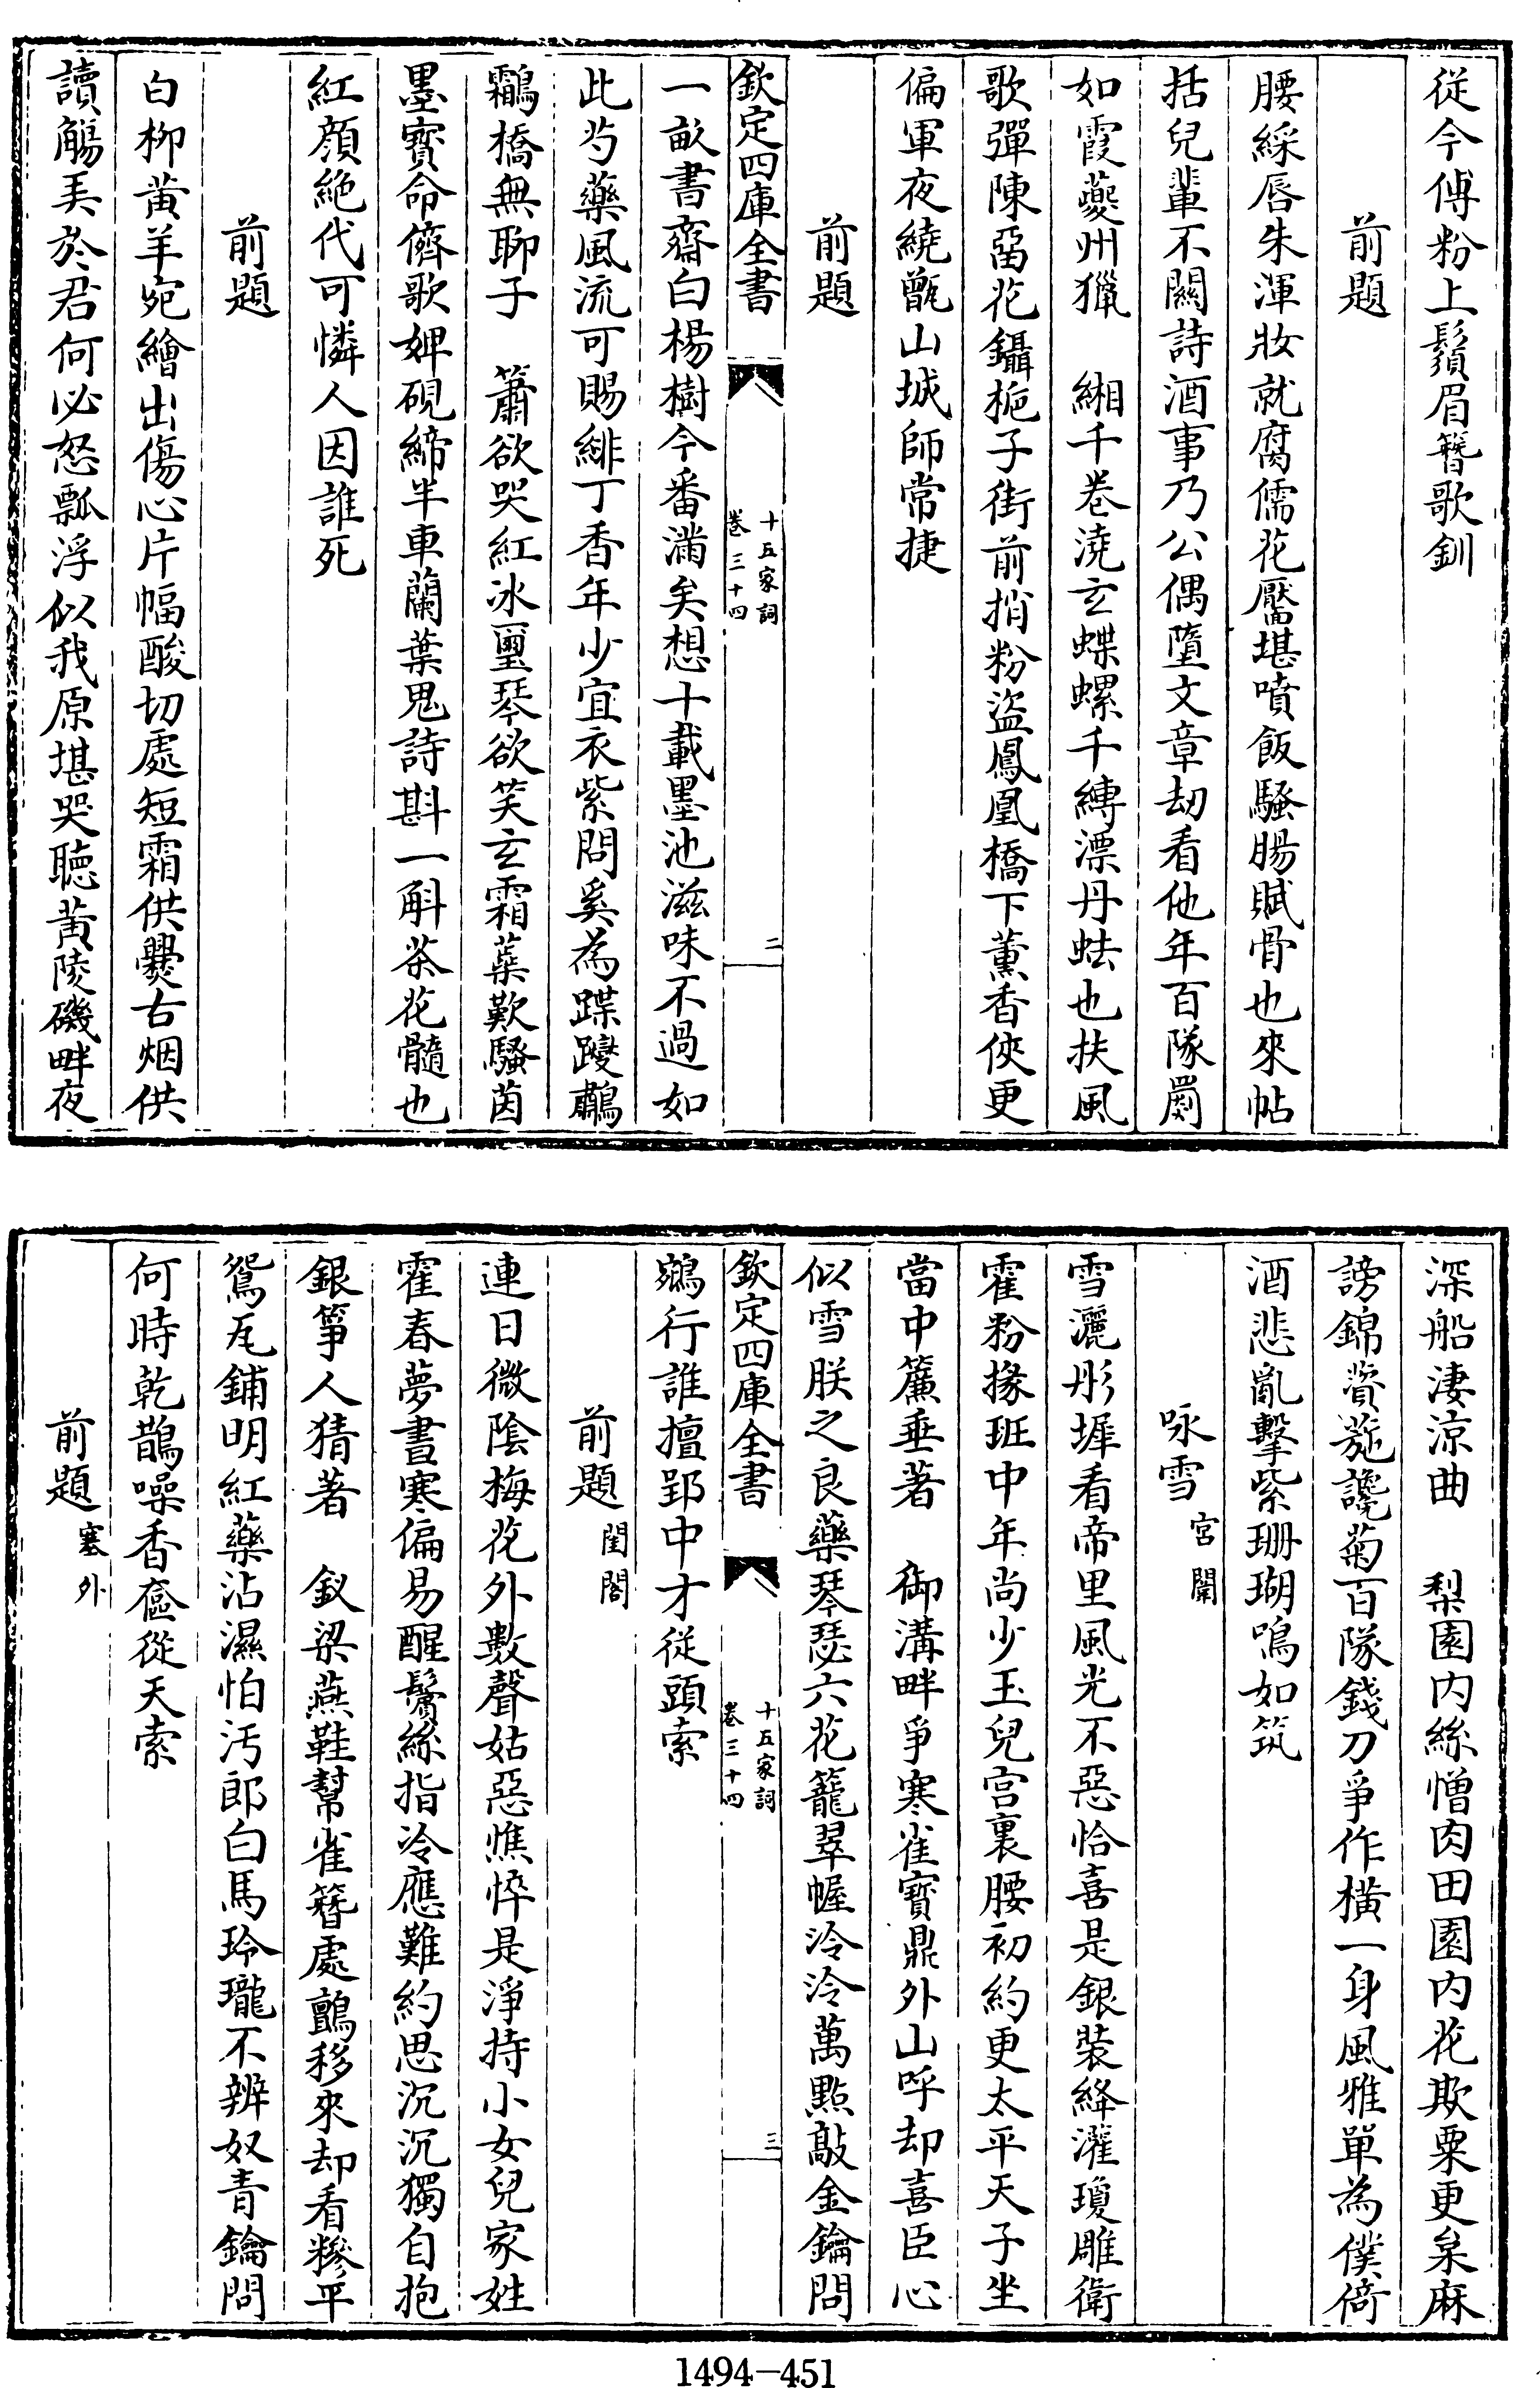 從今傅粉上鬚眉簪歌釧
前題
腰綵唇朱渾妝就腐儒花靨堪噴飯騷腸賦骨也來帖
括兒輩不闕詩酒事乃公偶墮文章劫看他年百隊罽
如霞夔州獵　緗千卷澆玄蝶螺千縛漂丹蛙也扶風
歌彈陳畱花鑷桅子街前捎粉盜鳳凰橋下薰香俠更
偏軍夜繞甑山城師常捷
前題
欽定四庫全書
十五家詞
卷三十四
二
一畝書齋白楊樹今番滿矣想十載墨池滋味不過如
此芍藥風流可賜緋丁香年少宜衣紫問奚為蹀躞鸘
鸘橋無聊子　簫欲哭紅冰璽琴欲笑玄霜蘂歎騷茵
墨寶命儕歌婢硯締半車蘭葉鬼詩斟一斛茶花髓也
紅顏絶代可憐人因誰死
前題
白柳黃羊宛繪出傷心片幅酸切處短霜供爨古烟供
讀觴美於君何必怒瓢浮似我原堪哭聽黃陵磯畔夜
深船淒涼曲　梨園内絲憎肉田園内花欺粟更枲麻
謗錦薋葹讒菊百隊錢刀爭作橫一身風雅單為僕倚
酒悲亂擊紫珊瑚鳴如筑
咏雪宮闈
雪灑彤墀看帝里風光不惡恰喜是銀裝絳灌瓊雕衛
霍粉掾班中年尚少玉兒宫裏腰初約更太平天子坐
當中簾垂著　御溝畔爭寒雀寶鼎外山呼却喜臣心
似雪朕之良藥琴瑟六花籠翠幄泠泠萬點敲金鑰問
欽定四庫全書
十五家詞
卷三十四
三
鵷行誰擅郢中才從頭索
前題閨閣
連日微陰梅花外數聲姑惡憔悴是淨持小女兒家姓
霍春夢晝寒偏易醒鬢絲指冷應難約思沉沉獨自抱
銀箏人猜著　釵梁燕鞋幫雀簪處鸇移來却看糝平
鴛瓦鋪明紅藥沾濕怕汚郎白馬玲瓏不辨奴青鑰問
何時乾鵲噪香奩從天索
前題塞外
1494-451